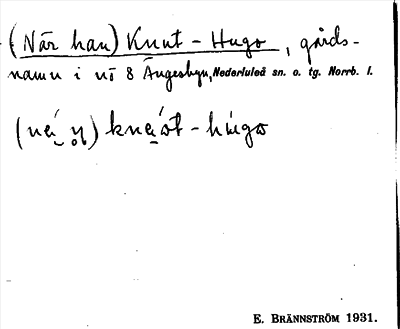 (När han) Knut - Hugo, gårds-
namn i nr 8 Ängesbyn, Nederluleå sn. o. tg. Norrb. l.
E. BRÄNNSTRÖM 1931.